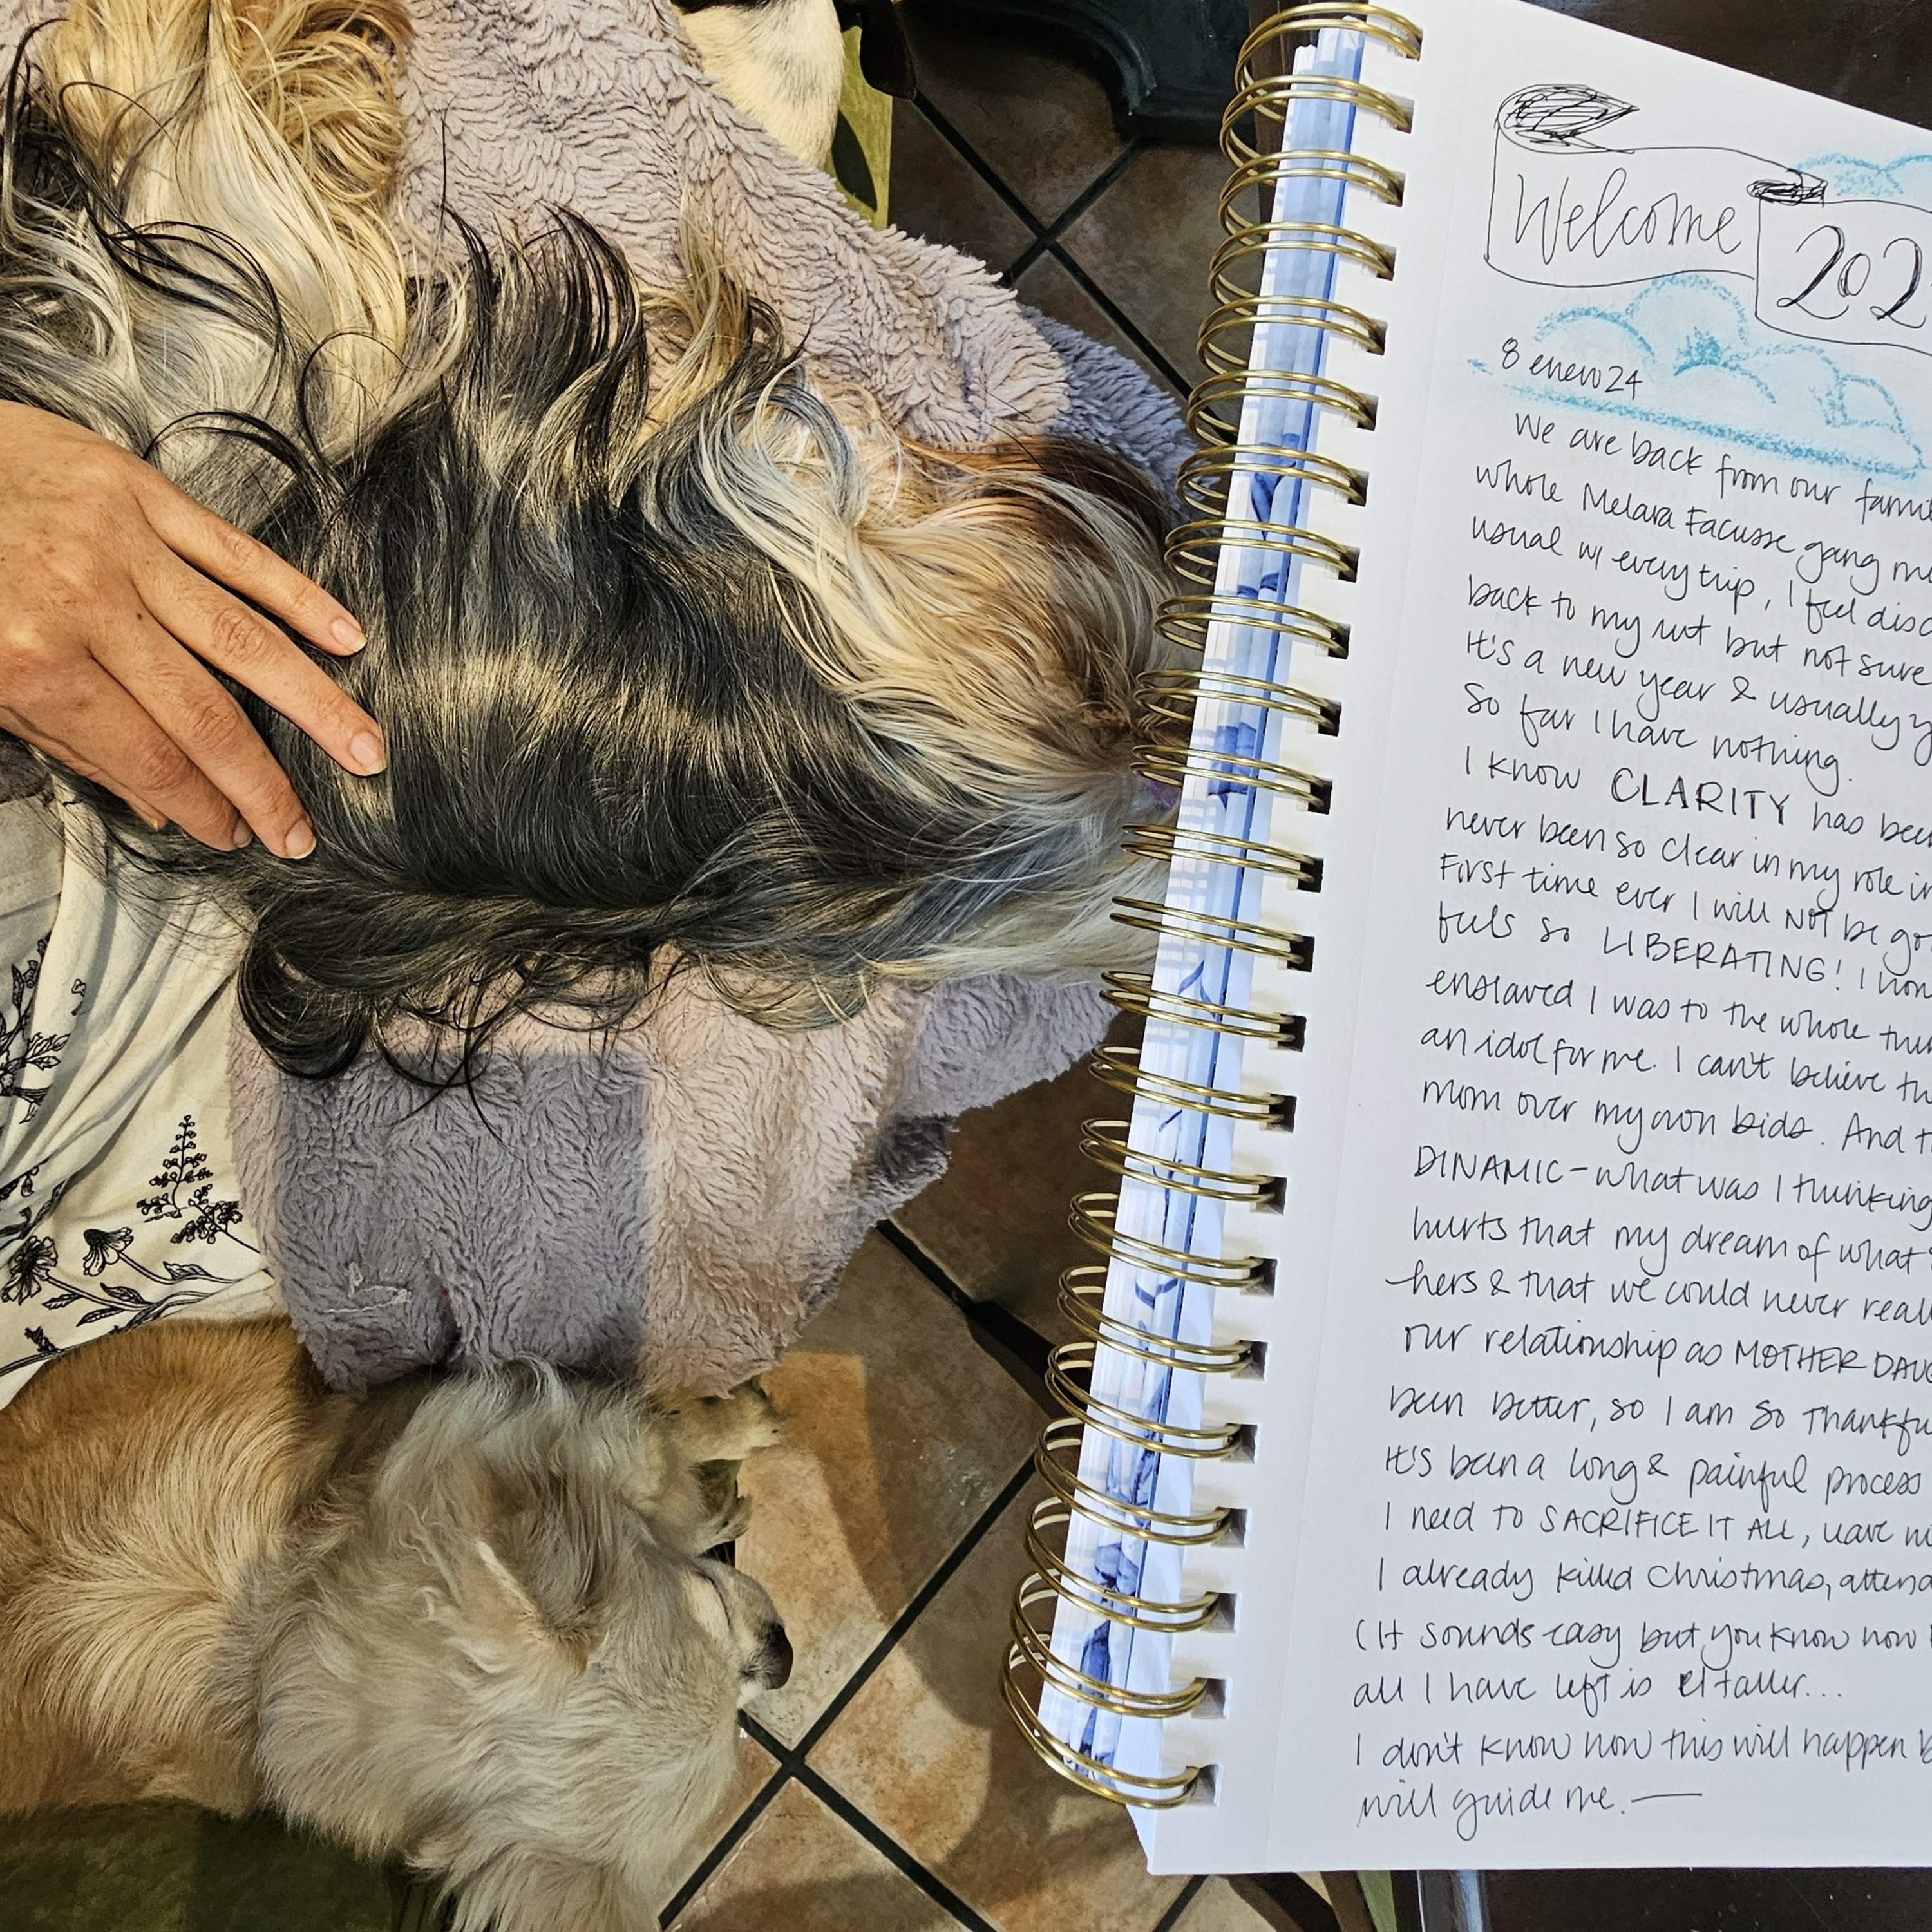 Welcome
202
8 enero 24
We are back from our fami
whole Melara Facusse gang me
usual w/ every trip, I feel disc
back to my rut but not sure
It's a new year & usually y
So far I have nothing.
I know CLARITY has bee
never been so clear in my role in
First time ever I will NOT be go
feels so LIBERATING! I hon
enslaved I was to the whole thin
an idol for me. I can't believe th
mom over my own bids. And t
DINAMIC - what was I thinking
hurts that my dream of what
hers & that we could never real
our relationship as MOTHER DAUG
been better, so I am so thankfu
It's been a long & painful process
I need to SACRIFICE IT ALL, leave m
I already killed Christmas, attend
(It sounds easy but you know how
all I have left is el taller...
I don't know how this will happen b
will guide me. —